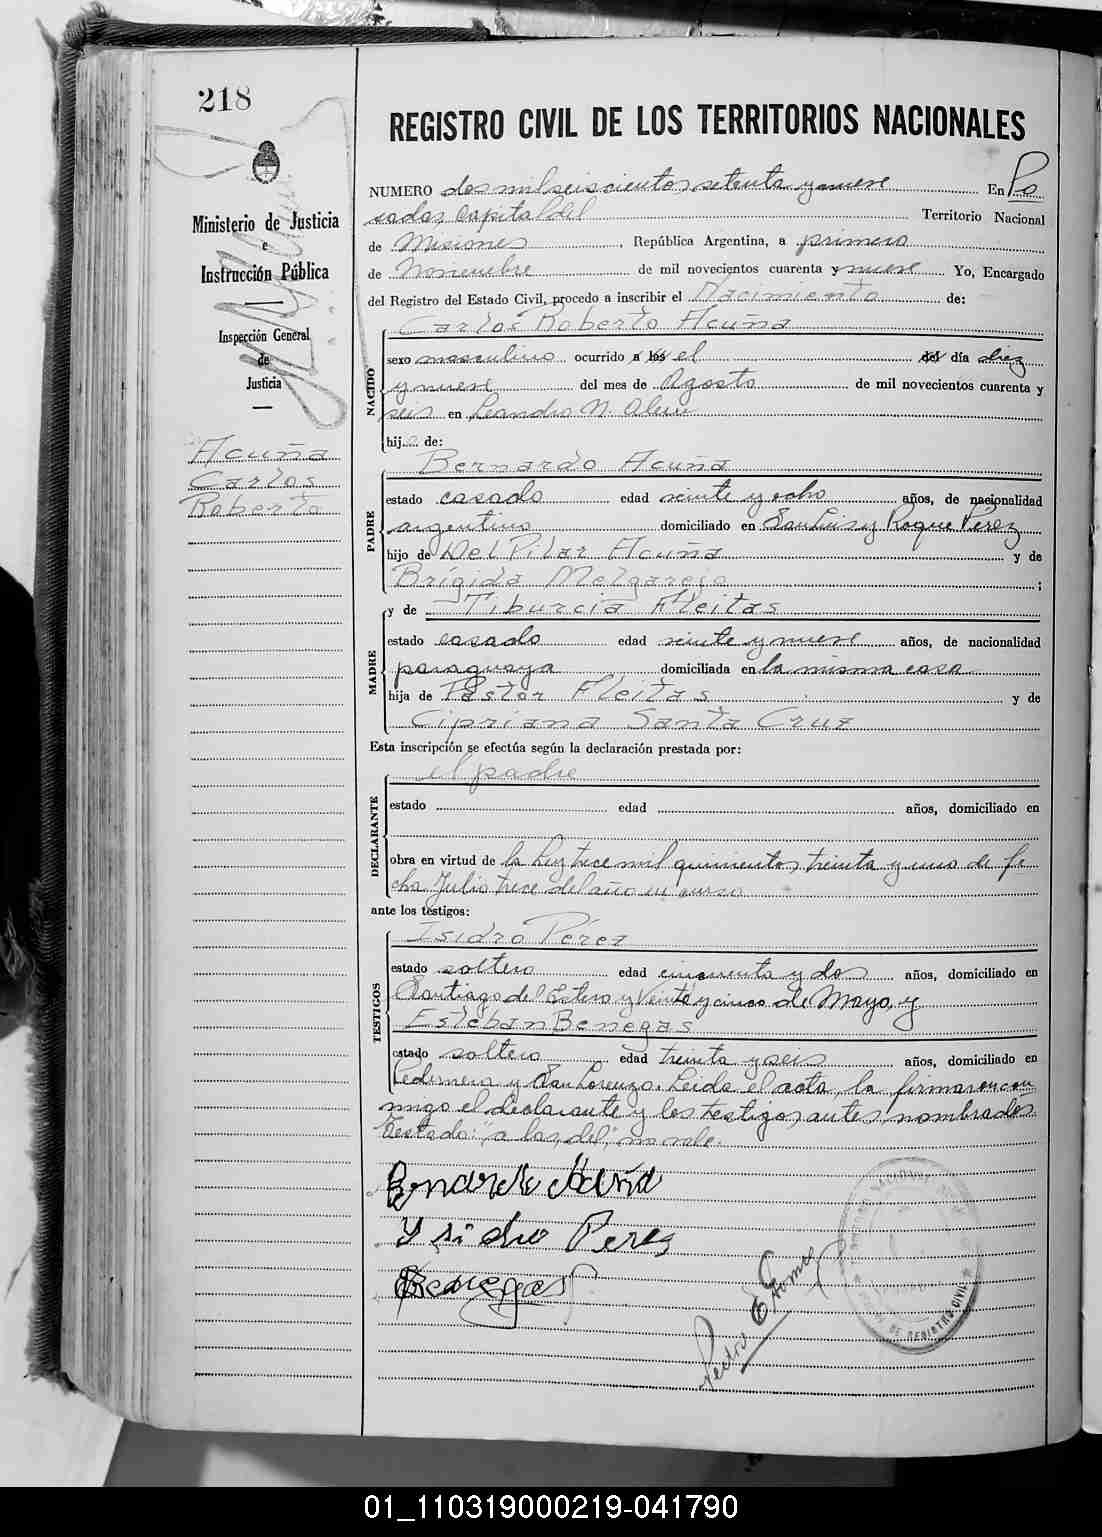 218
Ministerio de Justicia
e
Instrucción Pública
Inspección General
de
Justicia
Acuña
Carlos
Roberto
REGISTRO CIVIL DE LOS TERRITORIOS NACIONALES
NUMERO dos mil seiscientos setenta y nueve En Po
sadas, Capital del Territorio Nacional
de Misiones, República Argentina, a primero
de Noviembre de mil novecientos cuarenta y nueve Yo, Encargado
del Registro del Estado Civil, procedo a inscribir el Nacimiento de:
NACIDO
Carlos Roberto Acuña
sexo masculino ocurrido a las el del día diez
y nueve del mes de Agosto de mil novecientos cuarenta y
seis en Leandro N. Alem
hijo de:
PADRE
Bernardo Acuña
estado casado edad veinte y ocho años, de nacionalidad
argentino domiciliado en San Luis y Roque Pérez
hijo de Del Pilar Acuña y de
Brígida Melgarejo;
MADRE
y de Tiburcia Fleitas
estado casada edad veinte y nueve años, de nacionalidad
paraguaya domiciliada en la misma casa
hija de Pastor Fleitas y de
Cipriana Santa Cruz
Esta inscripción se efectúa según la declaración prestada por:
DECLARANTE
el padre
estado edad años, domiciliado en
obra en virtud de la Ley trece mil quinientos treinta y uno de fe
cha Julio trece del año en curso
ante los testigos:
TESTIGOS
Isidro Pérez
estado soltero edad cincuenta y dos años, domiciliado en
Santiago del Estero y Veinte y cinco de Mayo, y
Esteban Benegas
estado soltero edad treinta y seis años, domiciliado en
Pedernera y San Lorenzo. Leida el acta, la firmaron con
migo el declarante y los testigos antes nombrados.
Testado: "a las, del", no vale.
Bernardo Acuña
Ysidro Perez
Benegas
Pedro E Gomez
DE REGISTRO CIVIL
01_110319000219-041790